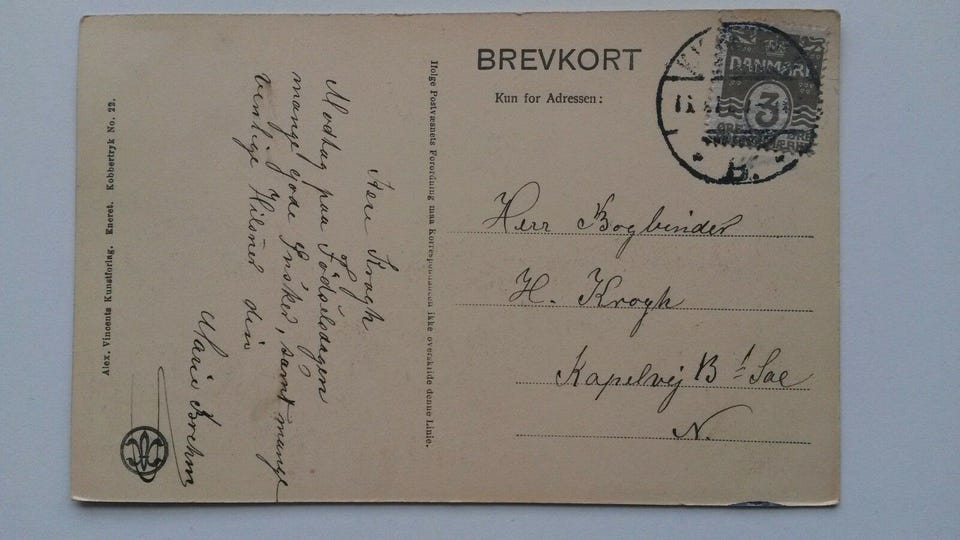 BREVKORT
Kun for Adressen:
DANMARK
3
B.
Herr Bogbinder
H. Krogh
Kapelvej B 1 Sal
N.
Herr Krogh.
Modtag paa Fødselsdagen
mange gode Ønsker, samt mange
venlige Hilsner din
Marie Brehm
Ifølge Postvæsnets Forordning maa Korrespondancen ikke overskride denne Linie.
Alex. Vincents Kunstforlag. Eneret. Kobbertryk No. 22.